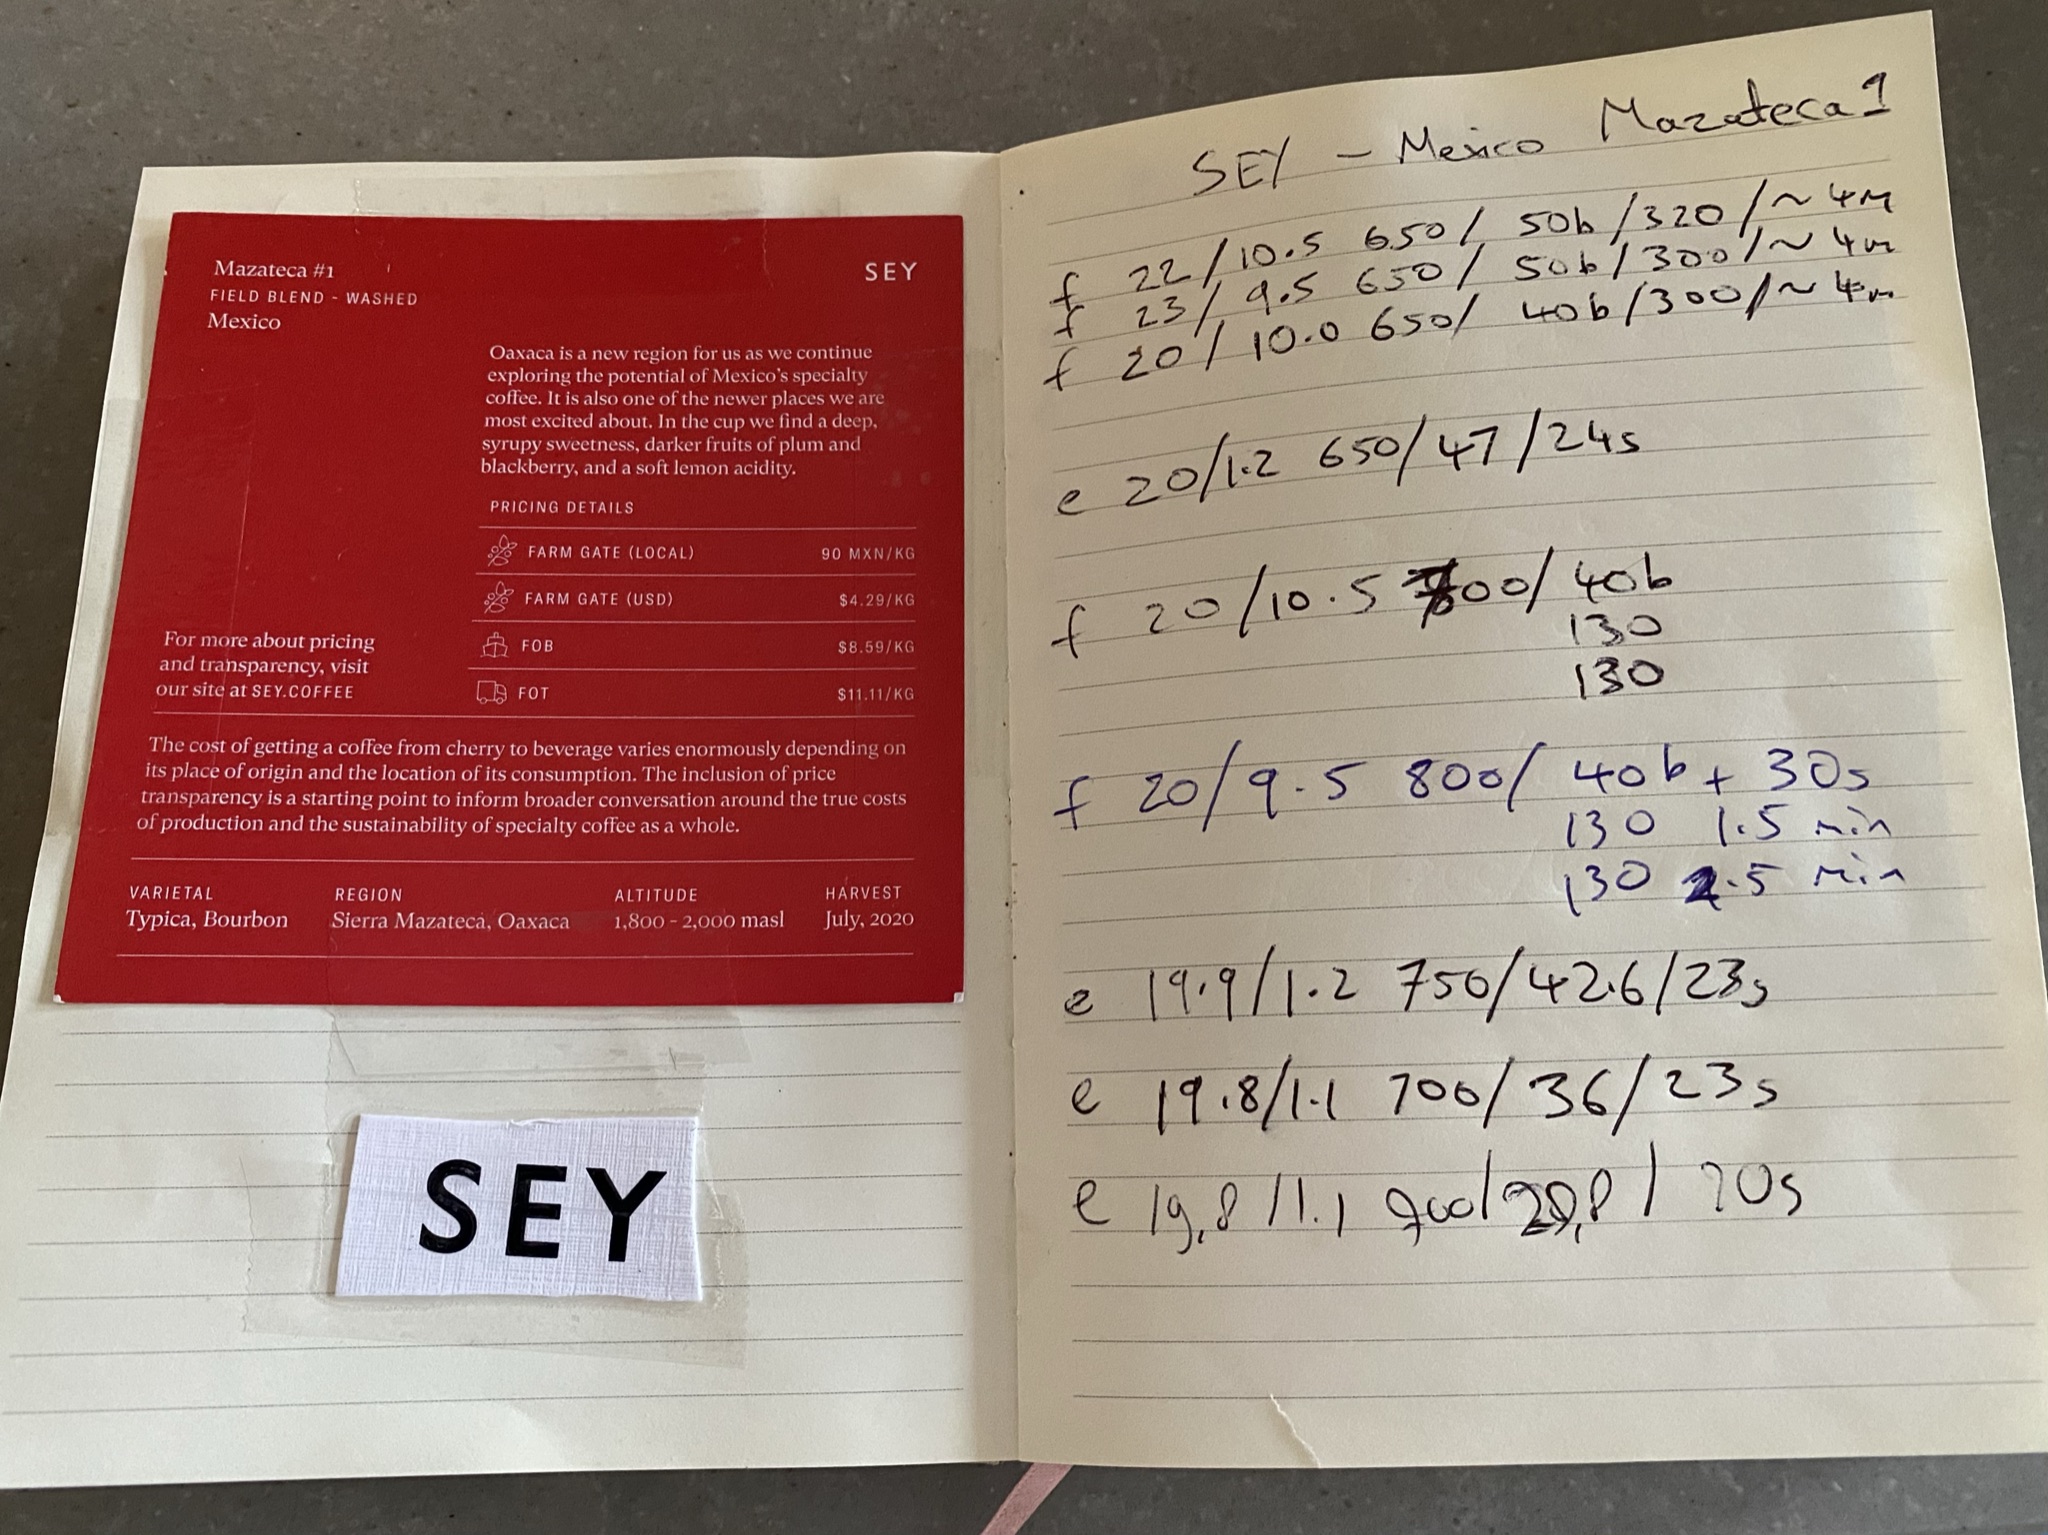 Mazateca #1
FIELD BLEND - WASHED
Mexico
SEY
Oaxaca is a new region for us as we continue
exploring the potential of Mexico's specialty
coffee. It is also one of the newer places we are
most excited about. In the cup we find a deep,
syrupy sweetness, darker fruits of plum and
blackberry, and a soft lemon acidity.
PRICING DETAILS
FARM GATE (LOCAL) 90 MXN/KG
FARM GATE (USD) $4.29/KG
FOB $8.59/KG
FOT $11.11/KG
For more about pricing
and transparency, visit
our site at SEY.COFFEE
The cost of getting a coffee from cherry to beverage varies enormously depending on
its place of origin and the location of its consumption. The inclusion of price
transparency is a starting point to inform broader conversation around the true costs
of production and the sustainability of specialty coffee as a whole.
VARIETAL REGION ALTITUDE HARVEST
Typica, Bourbon Sierra Mazateca, Oaxaca 1,800 - 2,000 masl July, 2020
SEY
SEY - Mexico Mazateca 1
f 22/10.5 650/ 50b/320/~4m
f 23/9.5 650/ 50b/300/~4m
f 20/10.0 650/ 40b/300/~4m
e 20/1.2 650/47/24s
f 20/10.5 40b
130
130
f 20/9.5 800/ 40b + 30s
130 1.5 min
130 2.5 min
e 19.9/1.2 750/42.6/23s
e 19.8/1.1 700/36/23s
e 19,8/1.1